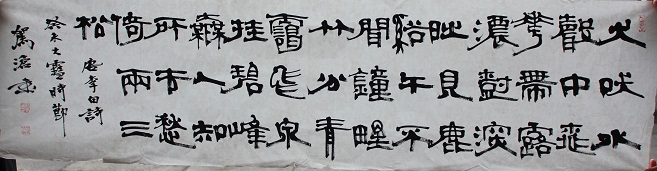 犬吠水
聲中桃
華帶露
濃樹深
時見鹿
谿午不
聞鐘野
竹分青
靄飛泉
挂碧峰
無人知
所去愁
倚兩三
松
唐李白詩